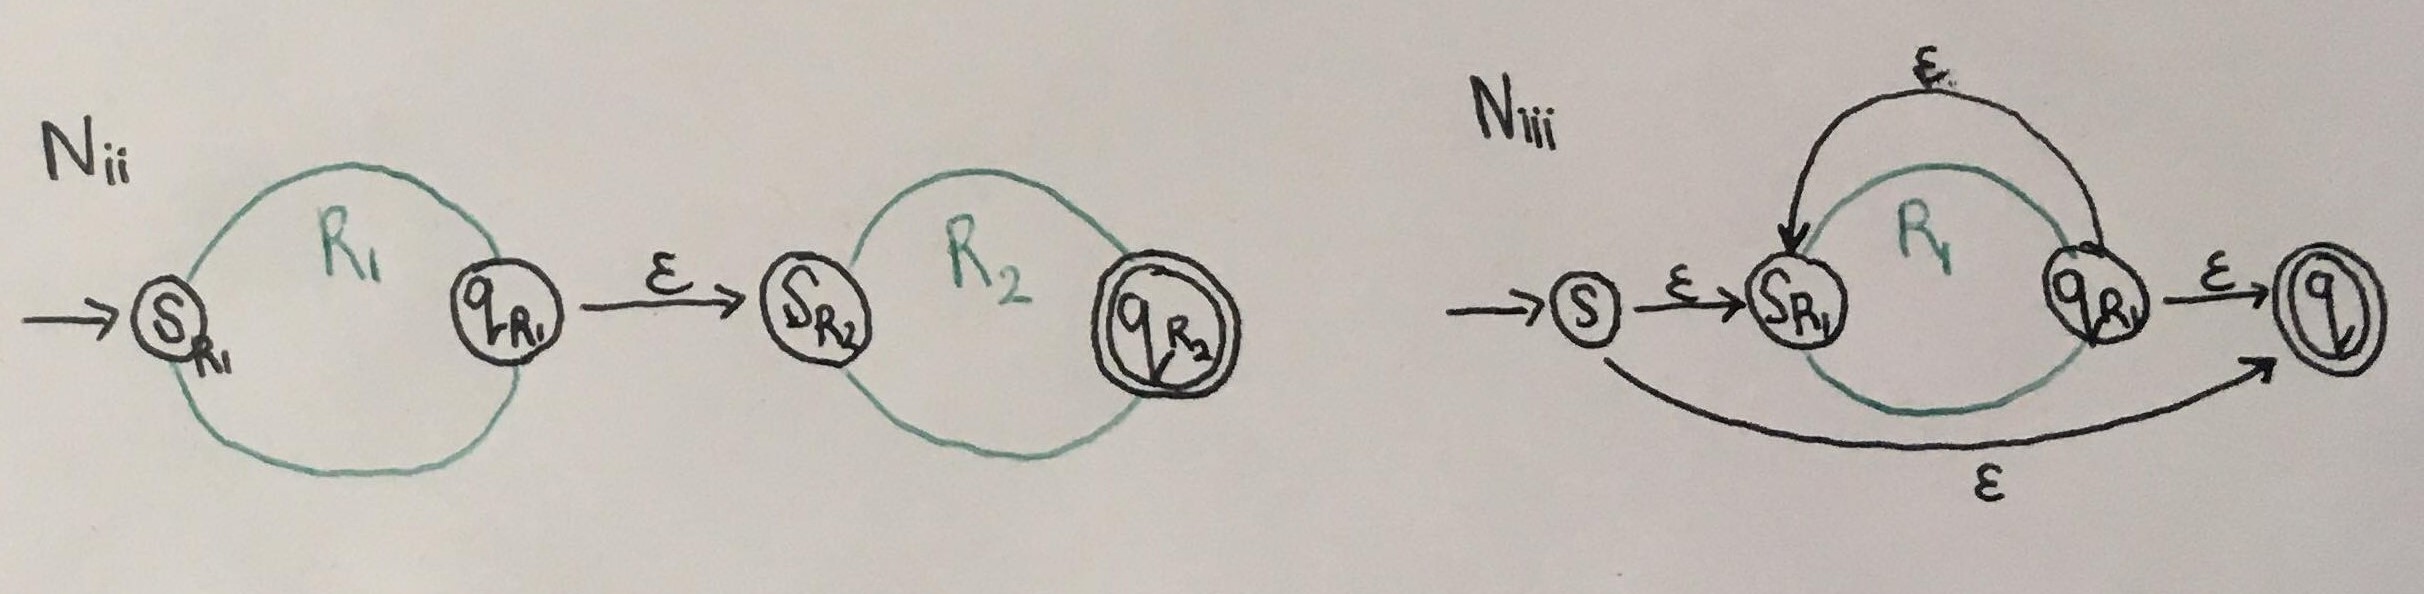 Nii
R1
SR1
qR1
ε
SR2
R2
qR2
Niii
ε
R1
S
ε
SR1
qR1
ε
q
ε